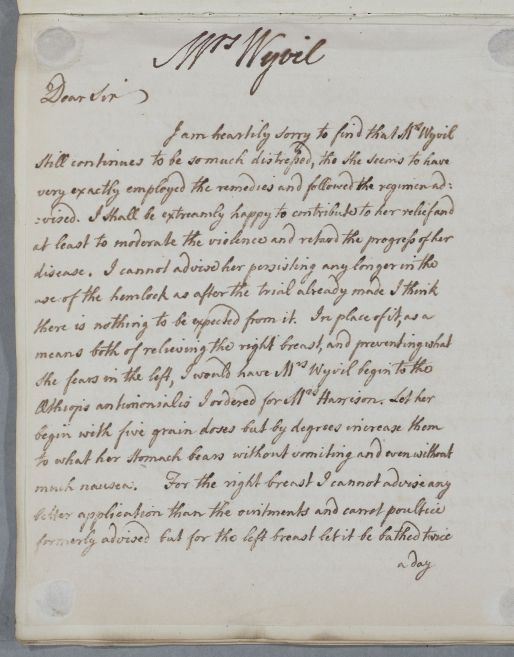 Mrs Wyvil
Dear Sir
I am heartily sorry to find that Mrs Wyvil
still continues to be so much distressed, tho she seems to have
very exactly employed the remedies and followed the regimen ad:
:vised. I shall be extreamly happy to contribute to her relief and
at least to moderate the violence and retard the progress of her
disease. I cannot advise her persisting any longer in the
use of the hemlock as after the trial already made I think
there is nothing to be expected from it. In place of it, as a
means both of relieving the right breast, and preventing what
she fears in the left, I would have Mrs Wyvil begin to the
Æthiops antimonialis I ordered for Mrs Harrison. Let her
begin with five grain doses but by degrees increase them
to what her stomach bears without vomiting and even without
much nausea. For the right breast I cannot advise any
better application than the ointments and carrot poultice
formerly advised but for the left breast let it be bathed twice
a day